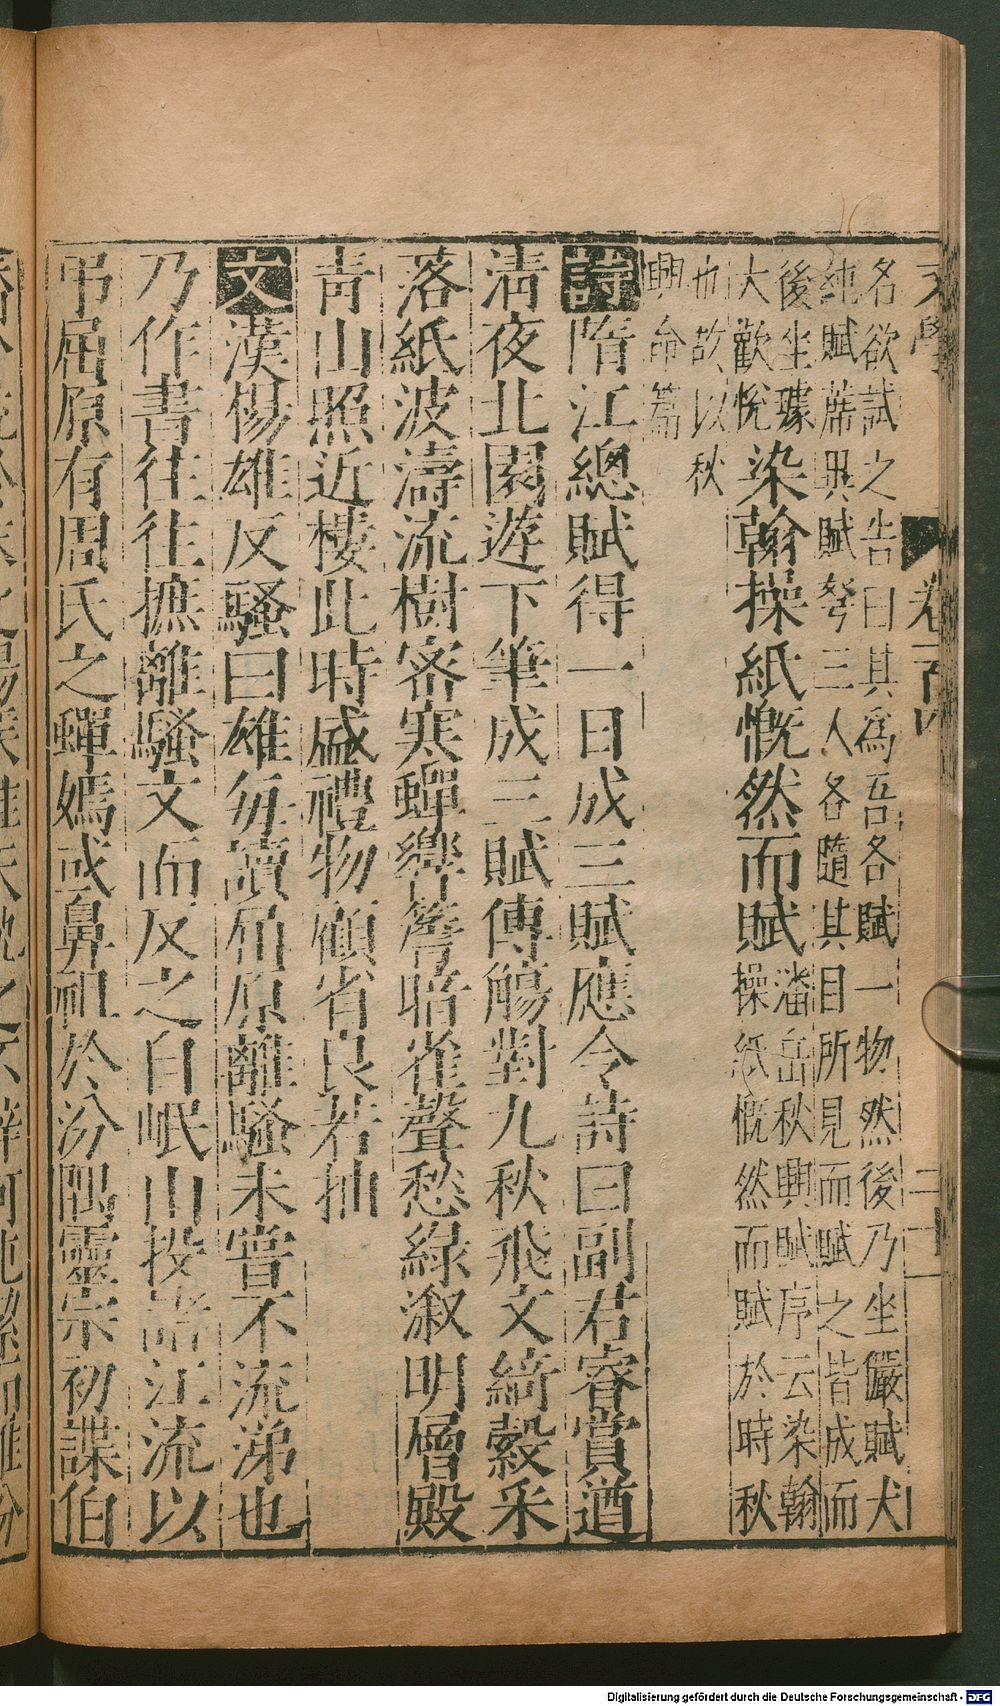 文學
卷一百四
名欲試之告曰其為吾各賦一物然後乃坐儼賦犬
純賦蓆異賦弩三人各隨其目所見而賦之皆成而
後坐璩
大歡悅
染翰操紙慨然而賦
潘岳秋興賦序云染翰
操紙慨然而賦於時秋
也故以秋
興命篇
詩隋江總賦得一日成三賦應令詩曰副君睿賞遒
淸夜北園遊下筆成三賦傳觴對九秋飛文綺縠采
落紙波濤流樹密寒蟬響簷暗雀聲愁綠溆明層殿
靑山照近樓此時盛禮物顧省良若抽
文漢楊雄反騷曰雄每讀屈原離騷未嘗不流涕也
乃作書往往摭離騷文而反之自岷山投諸江流以
弔屈原有周氏之蟬嫣或鼻祖於汾隅靈宗初諜伯
Digitalisierung gefördert durch die Deutsche Forschungsgemeinschaft - DFG